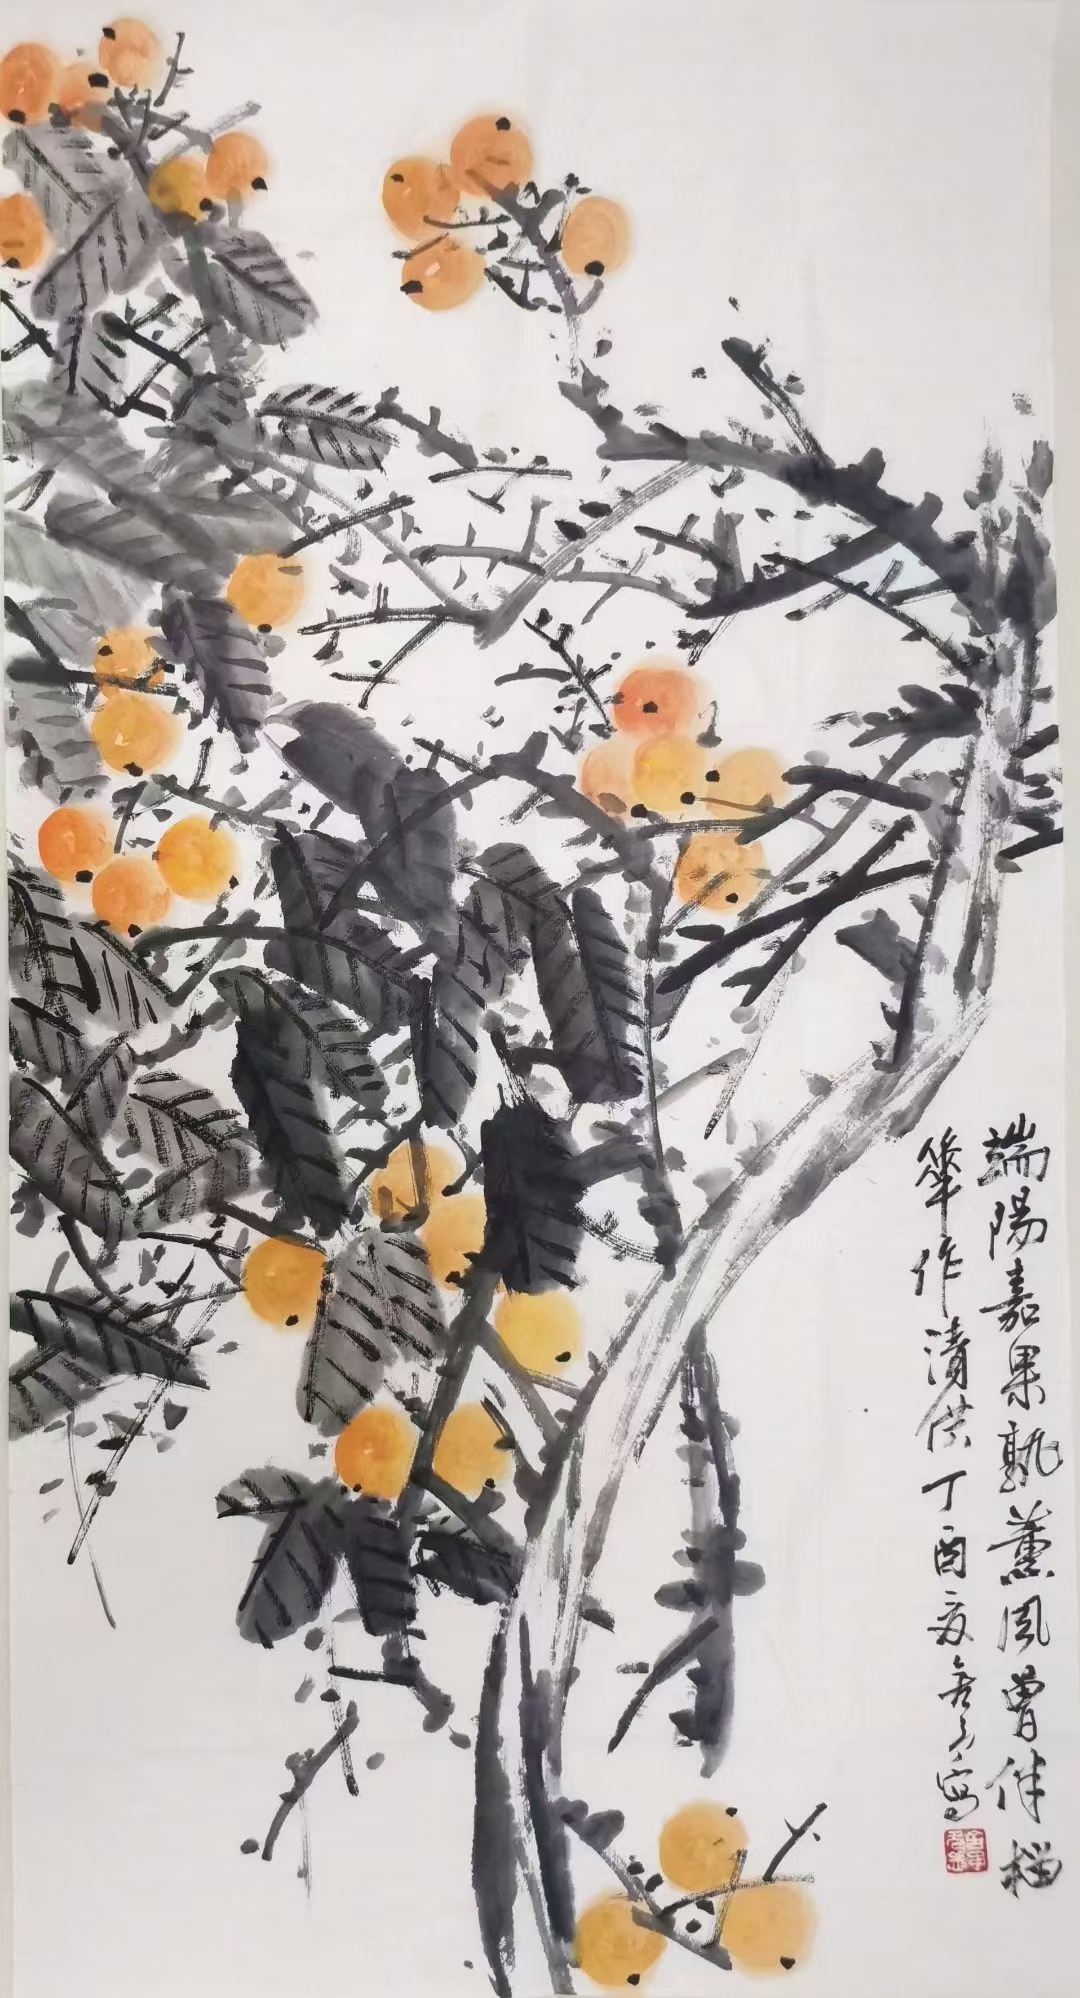 端陽嘉果熟薰風曾伴榴
華作清供丁酉夏
寫